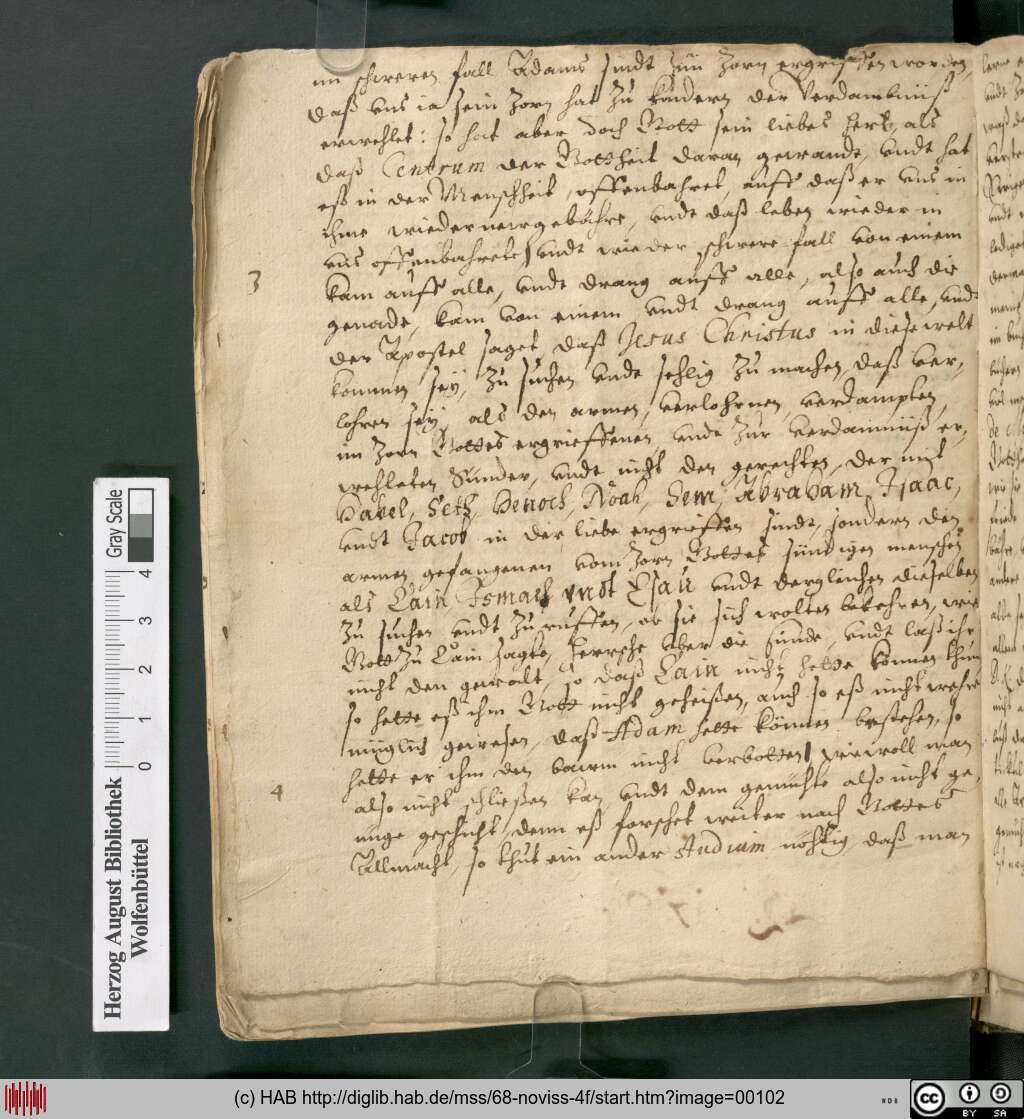 im schweren fall Adams sindt zum Zorn ergriffen worden,
daß uns ia sein Zorn hat zu kindern der Verdambniß
erwehlet: so hat aber doch Gott sein liebes Hertz, als
daß Centrum der Gottheit daran gewandt, undt hat
eß in der Menschheit, offenbahret, auff daß er uns in
ihme wiedernewgebähre, unde daß leben wieder in
uns offenbahrete, undt wie der schwere fall von einem
3
kam auff alle, unde drang auff alle, also auch die
genade, kam von einem undt drang auff alle, undt
der Apostel saget, daß Jesus Christus in diese welt
kommen sey, zu suchen unde sehlig zu machen, daß ver,
lohren sey, als den armen, verlohrnen, verdampten,
im Zorn Gottes ergrieffenen, unde zur verdamniß er,
wehleten Sünder, unde nicht den gerechten, der mit
Habel, Seth, Henoch, Noah, Sem, Abraham, Isaac,
undt Jacob in der liebe ergrieffen sindt, sondern den
armen gefangenen vom Zorn Gottes sündigen menschen
als Cain, Ismael, undt Esau unde dergleichen dieselben
zu suchen undt zu ruffen, ob sie sich wolten bekehren, wie
Gott zu Cain sagte, herrsche über die sünde, undt laß ihr
nicht den gewalt, so daß Cain nicht hette können thun
so hette eß ihm Gott nicht geheißen, auch so eß nicht wehre
müglich gewesen, daß Adam hette können bestehen, so
hette er ihm den baum nicht verbotten, wiewoll man
4
also nicht schließen kan, undt dem gemühte also nicht ge,
nüge geschicht, denn eß forschet weiter nach Gottes
Allmacht, so thut ein ander studium nöhtig daß man
Herzog August Bibliothek
Wolfenbüttel
Gray Scale
0 1 2 3 4
(c) HAB http://diglib.hab.de/mss/68-noviss-4f/start.htm?image=00102
CC BY SA